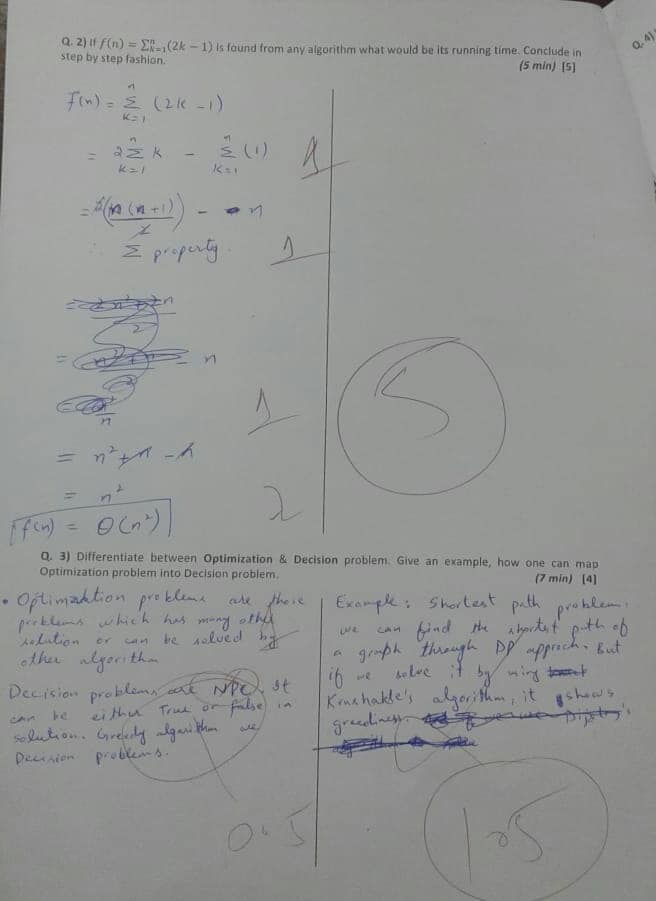 Q. 4)
Q. 2) If f(n) = Σⁿₖ₌₁(2k – 1) is found from any algorithm what would be its running time. Conclude in
step by step fashion. (5 min) [5]
f(n) = Σⁿₖ₌₁ (2k - 1)
= 2 Σⁿₖ₌₁ k - Σⁿₖ₌₁ (1)
1
= 2(n(n+1))/2 - n
∴ Σ property.
1
= - n
1
5
= n² + n - n
= n²
2
f(n) = Θ(n²)
Q. 3) Differentiate between Optimization & Decision problem. Give an example, how one can map
Optimization problem into Decision problem. (7 min) [4]
• Optimization problems are those
problems which has many other
solution or can be solved by
other algorithm
Decision problems are NPC. It
can be either True or false in
solution. Greedy algorithm are
Decision problems.
0.5
Example: Shortest path problem.
we can find the shortest path of
a graph through DP approch. But
if we solve it by using
Krushakle's algorithm, it shows
greediness.
1.5